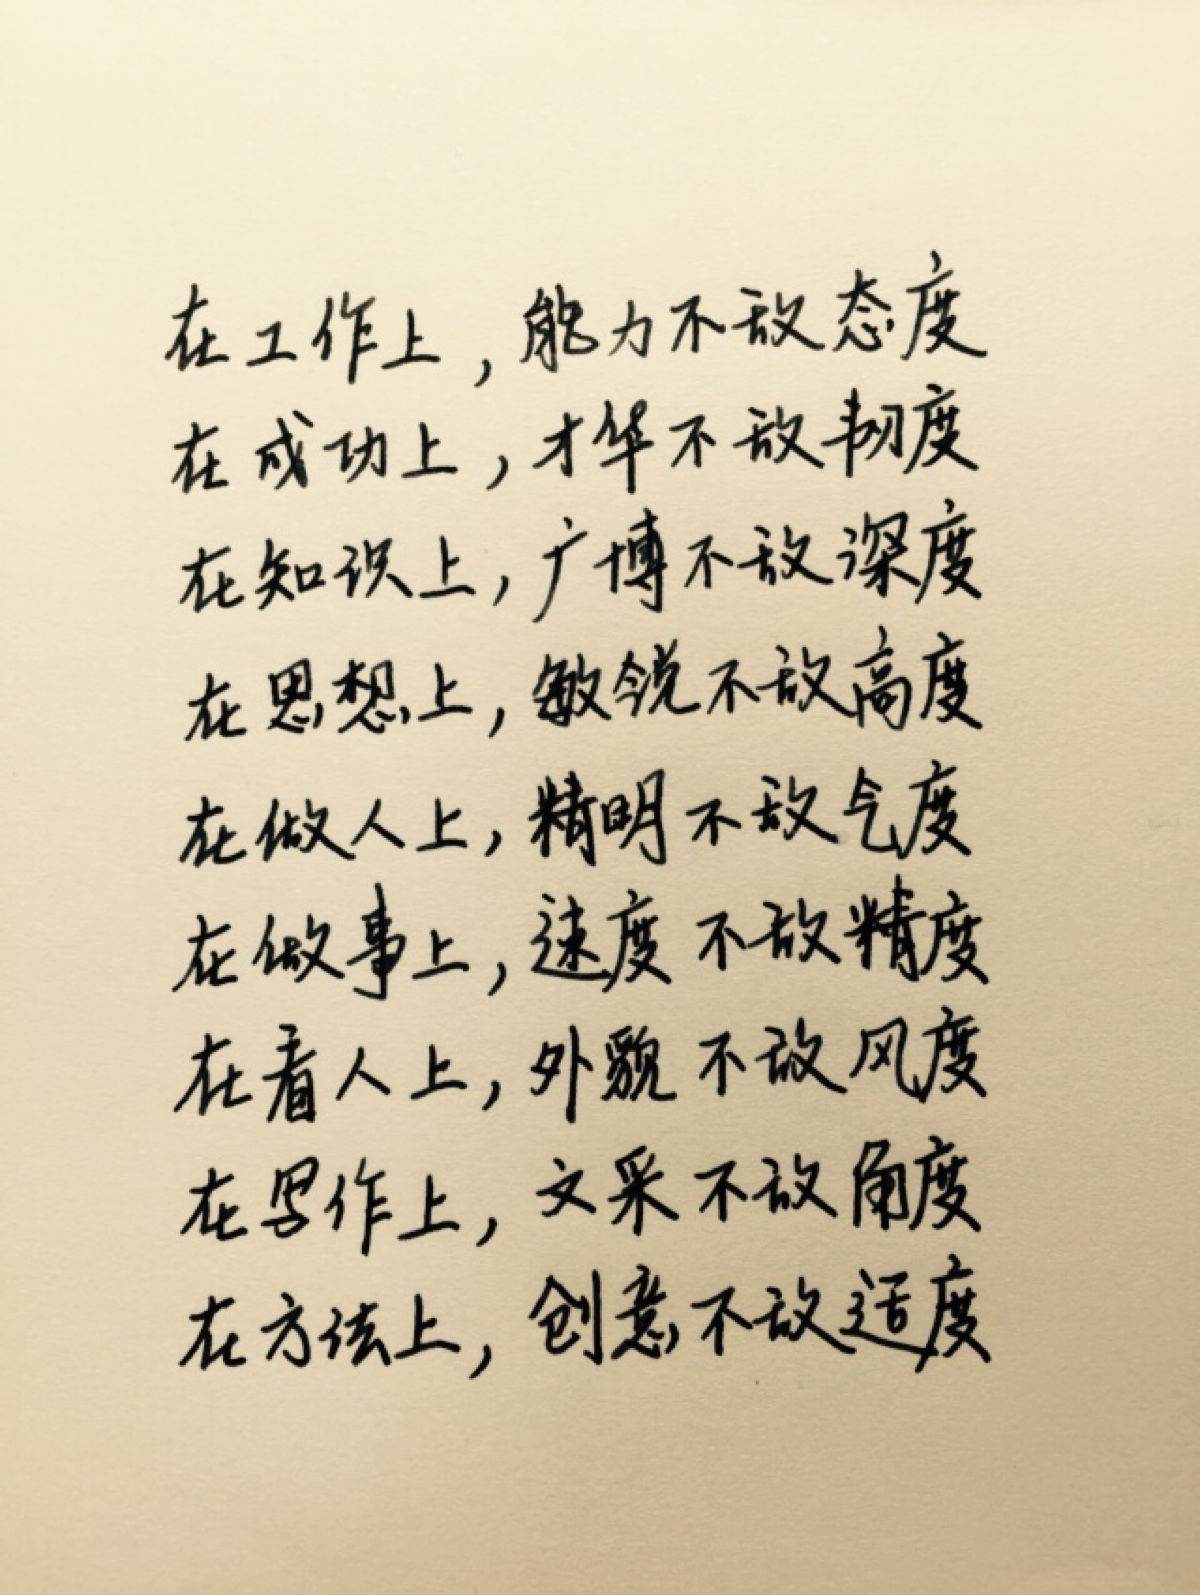 在工作上，能力不敌态度
在成功上，才华不敌韧度
在知识上，广博不敌深度
在思想上，敏锐不敌高度
在做人上，精明不敌气度
在做事上，速度不敌精度
在看人上，外貌不敌风度
在写作上，文采不敌角度
在方法上，创意不敌适度